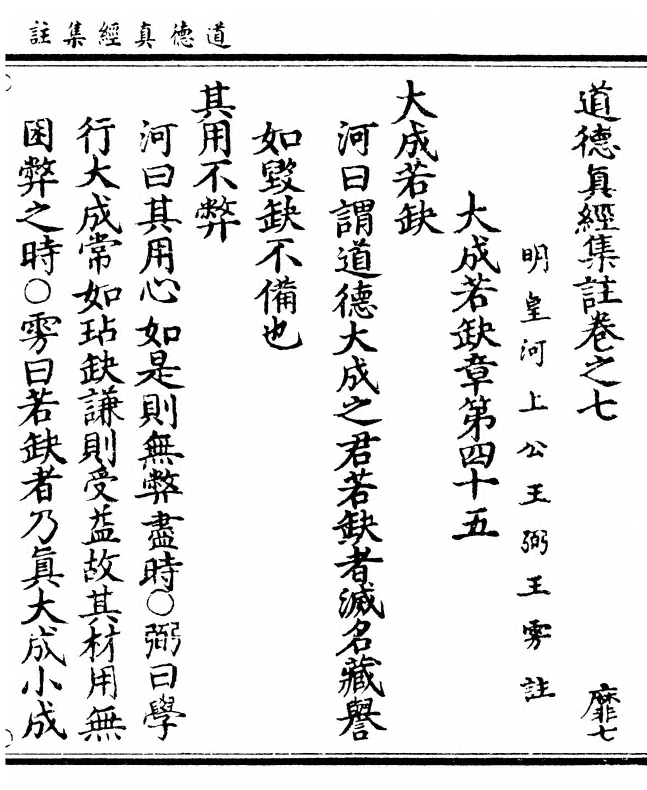 道德真經集註
道德真經集註卷之七
靡七
明皇河上公王弼王雱註
大成若缺章第四十五
大成若缺
河曰謂道德大成之君若缺者滅名藏譽
如毀缺不備也
其用不弊
河曰其用心如是則無弊盡時〇弼曰學
行大成常如玷缺謙則受益故其材用無
困弊之時〇雱曰若缺者乃眞大成小成